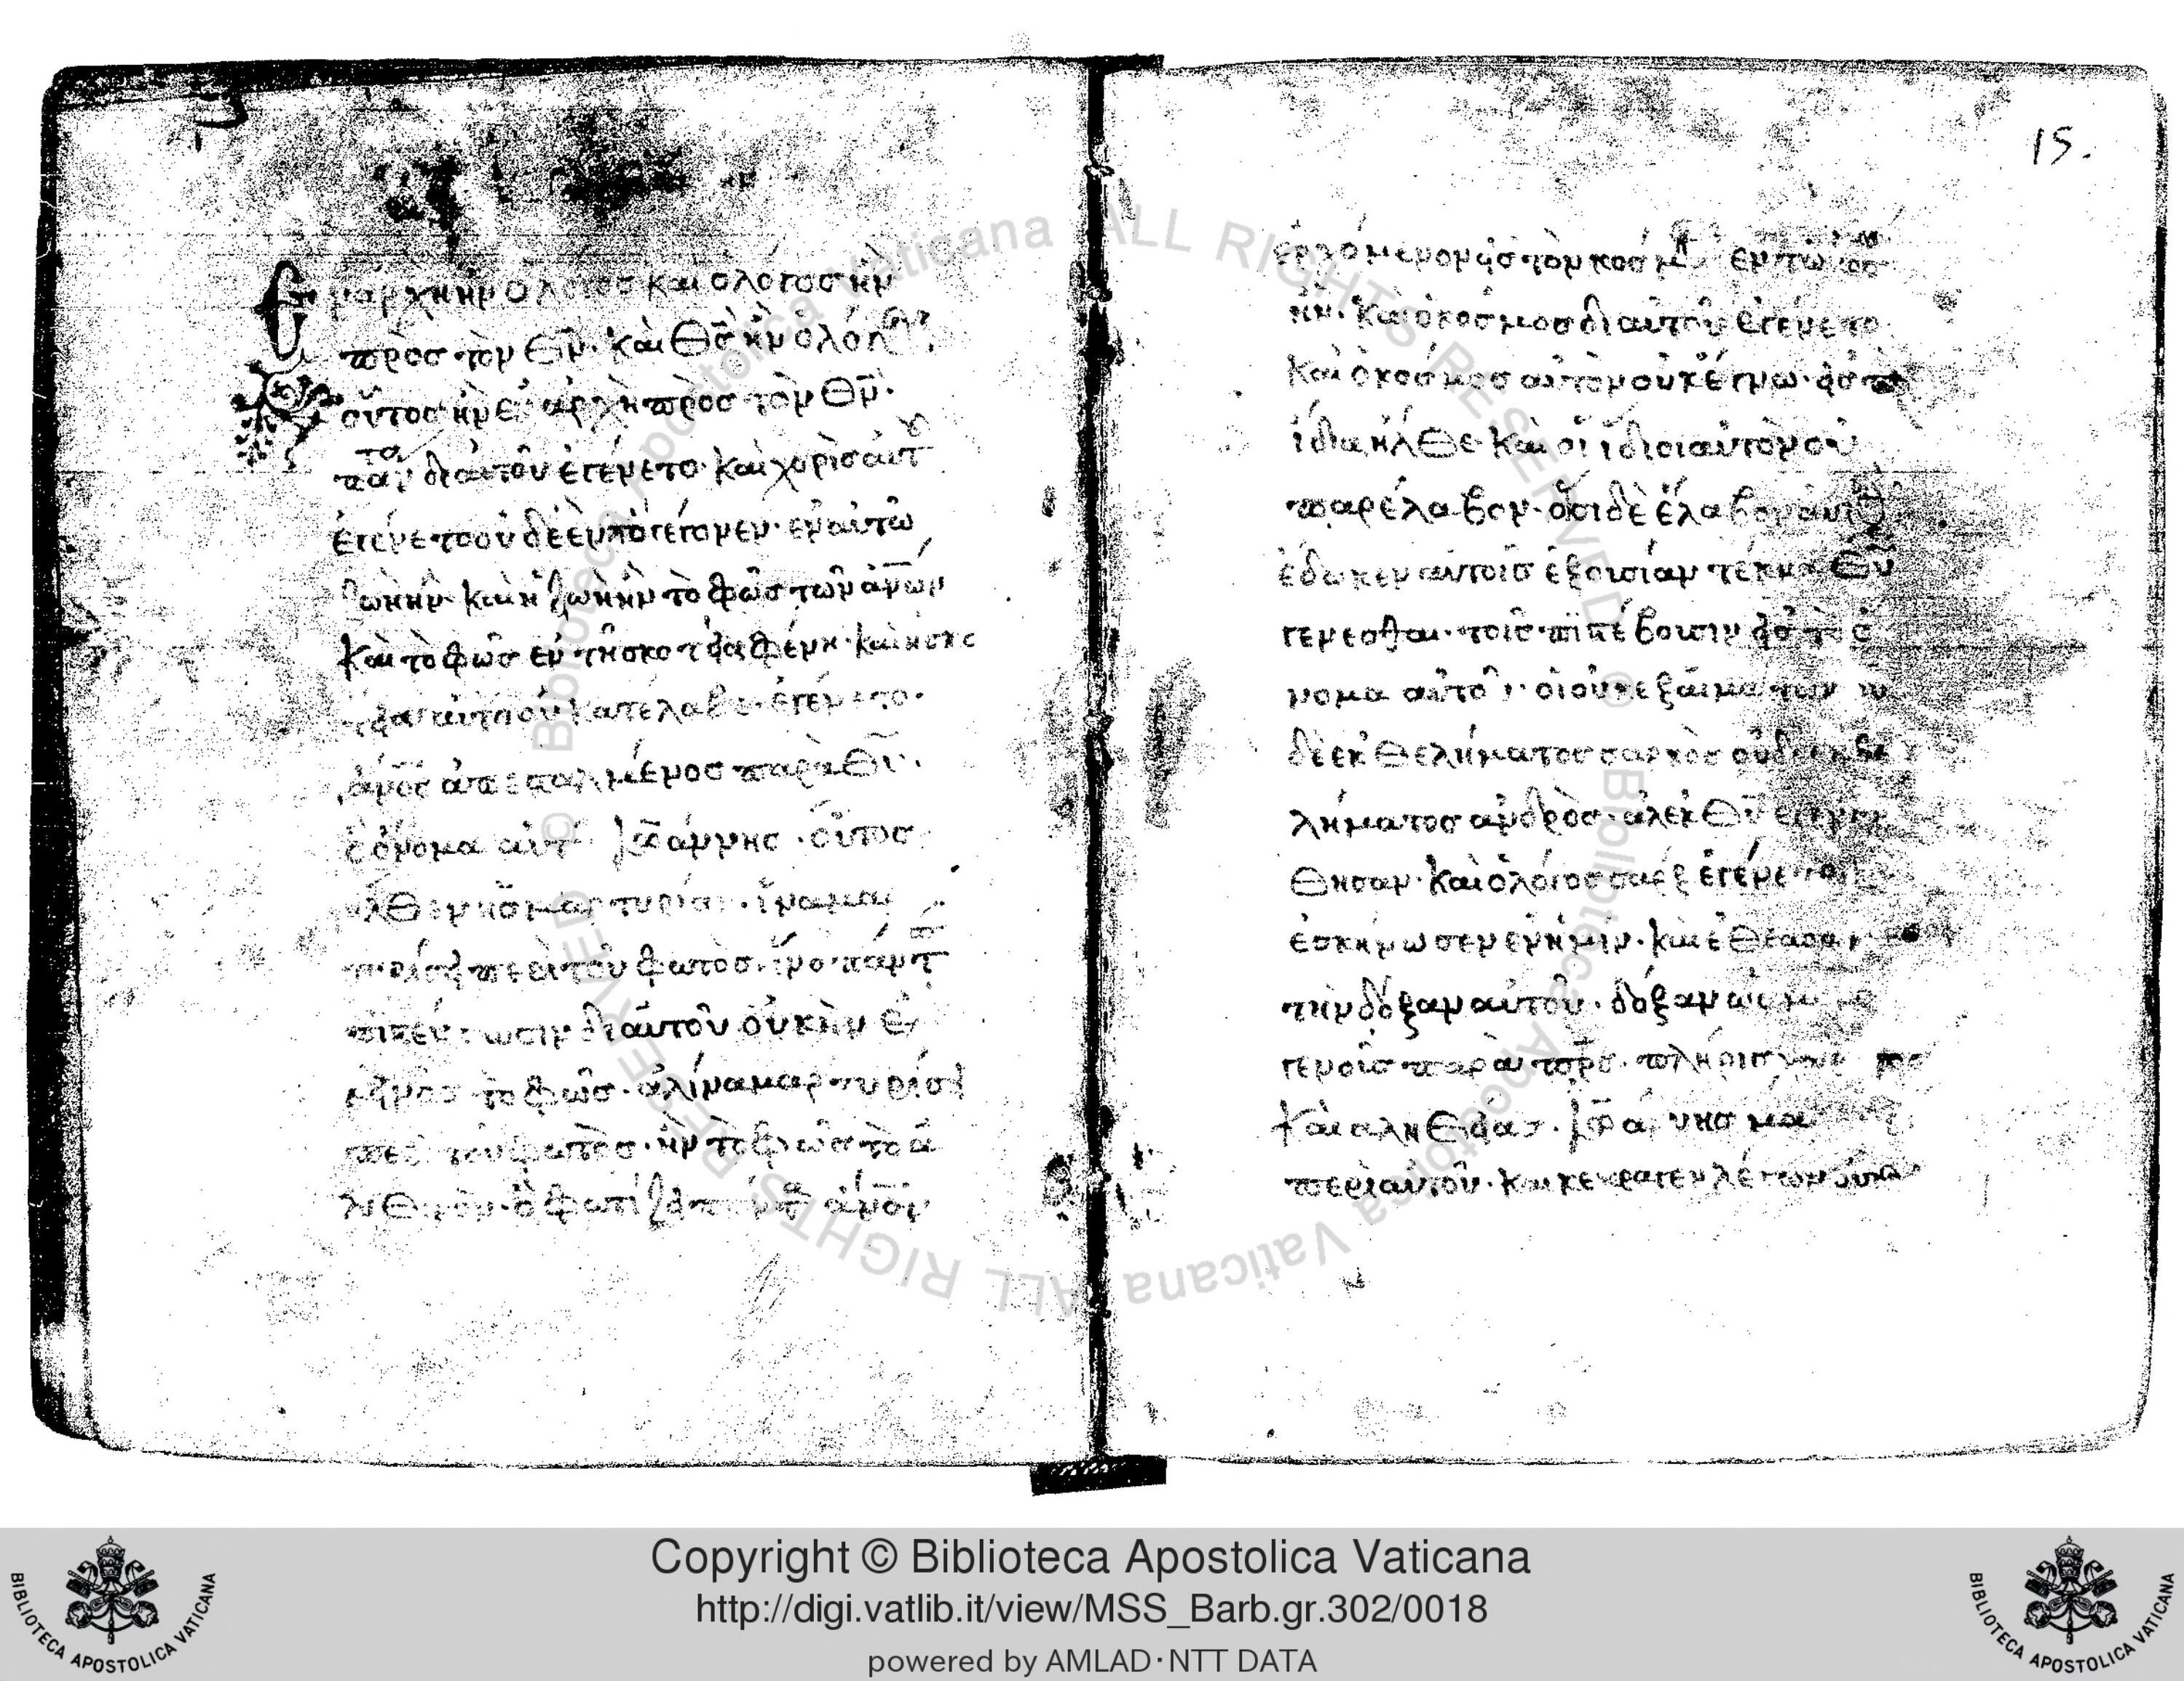 Ἐν αρχη ην ο λογος και ο λογος ην
προς τὸν Θν̄· και Θς̄ ην ο λόγος·
οὗτος ην εν αρχη προς τὸν Θν̄·
παντα δι αυτοῦ ἐγένετο· και χορὶς αυτ
ἐγένετο οὐδὲ ἐν ὁ γέγονεν· εν αὐτῶ
ζωη ην· και η ζωη ην τὸ φῶς τῶν ἀνω̄ν
και το φῶς εν τη σκοτεία φένη· και η σκο
τεία αυτὸ οὐ κατέλαβε· ἐγένετο·
ἀνο̄ς ἀπεσταλμένος παρὰ Θῡ·
ὄνομα αὐτ Ἰωάννης· οὗτος
ηλθεν εἰς μαρτυρίαν· ἵνα μα
περι τοῦ φωτὸς· ἵνα πάντ
πιστεύσωσιν δι αὐτοῦ οὐκ ην ἐ
κεῖνος τὸ φῶς· ἀλ ίνα μαρτυρίσει
περὶ τοῦ φωτὸς· ην τὸ φῶς τὸ ἀ
ληθινὸν· ὁ φωτίζει πάντα ἀνο̄ν
15.
ἐρχόμενον εἰς τὸν κοσμ εν τω κοσ
ην· Και ὁ κοσμος δι αυτοῦ ἐγένετο
Και ὁ κοσμος αυτὸν οὐκ ἔγνω· εἰς τὰ
ίδια ηλθε· και οἱ ἴδιοι αυτὸν οὐ
παρέλαβον· ὅσοι δὲ ἔλαβον αυτ
ἐδωκεν αυτοῖς ἐξουσίαν τέκνα Θῡ
γενεσθαι· τοῖς πιστέβουσιν εἰς τὸ ὄ
νομα αὐτοῦ· οἱ οὐκ εξ αἱμάτων ου
δὲ εκ Θελήματος σαρκὸς οὐδὲ εκ θε
λήματος ἀνδρὸς· ἀλ εκ Θῡ εγενη
Θησαν· Και ὁ λόγος σαρξ ἐγένετο
ἐσκήνωσεν εν ημῖν· και ἐθεασα
την δόξαν αὐτοῦ· δόξαν ὡς μο
γενοῦς παρὰ προ̄ς· πλήρις χαρ
Και αληθείας· Ἰωάννης μα
περὶ αὐτοῦ· και κεκραγεν λέγων οὗτο
Copyright © Biblioteca Apostolica Vaticana
http://digi.vatlib.it/view/MSS_Barb.gr.302/0018
powered by AMLAD·NTT DATA